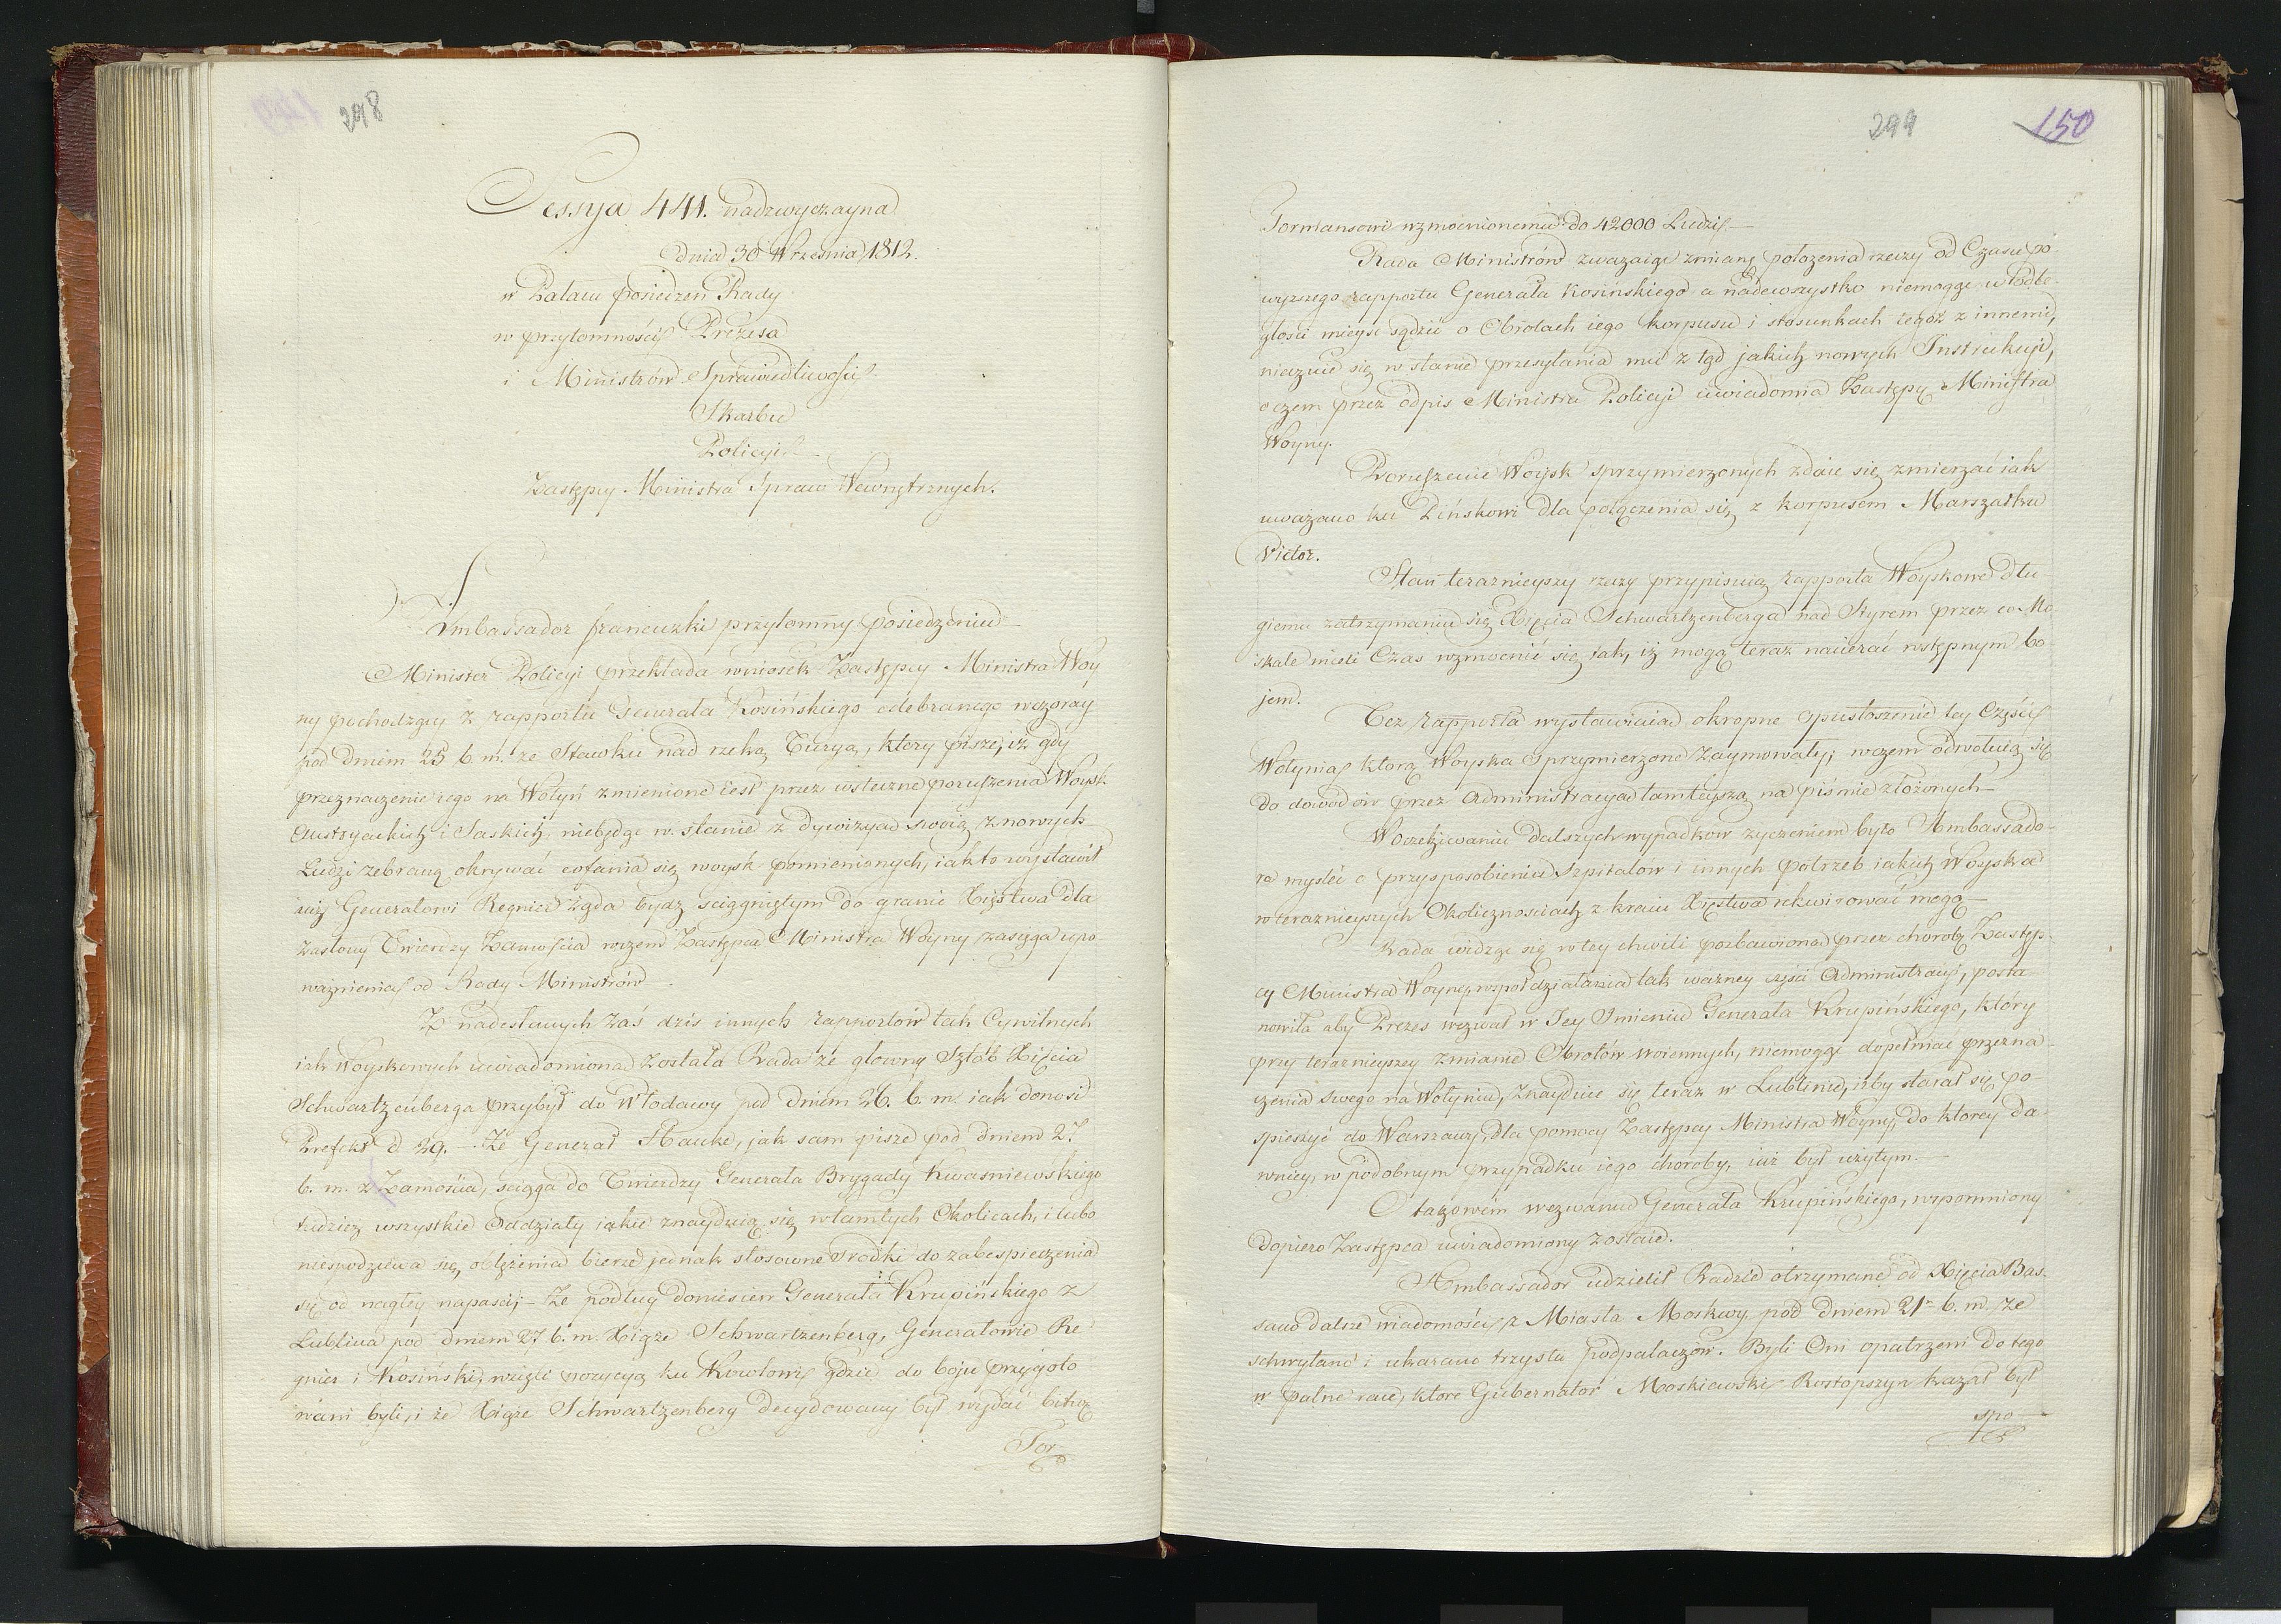 298
Sessya 441. nadzwyczayna
dnia 30 Września 1812.
w Pałacu posiedzeń Rady
w przytomności Prezesa
i Ministrów Sprawiedliwości
Skarbu
Policyi
Zastępcy Ministra Spraw Wewnętrznych.
Ambassador francuzki przytomny posiedzeniu
Minister Policyi przekłada wniosek Zastępcy Ministra Woy
ny pochodzący z rapportu Generała Kosińskiego odebranego wczoray
pod dniem 25 b. m. ze Stawku nad rzeką Turyą, który pisze, iż gdy
przeznaczenie iego na Wołyń zmienione iest przez wsteczne poruszenia Woysk
Austryackich i Saskich, niebędąc w stanie z dywizyą swoią z nowych
Ludzi zebraną okrywać cofania się woysk pomienionych, iak to wystawił
Generałowi Regnier żąda bydź ściągniętym do granic Xięstwa dla
zasłony Twierdzy Zamościa wczem Zastępca Ministra Woyny zasięga upo
ważnienia od Rady Ministrów.
Z nadesłanych zaś dziś innych rapportów tak Cywilnych
iak Woyskowych uwiadomiona została Rada że główny Sztab Xięcia
Schwartzenberga przybył do Włodawy pod dniem 26. b. m. iak donosi
Prefekt d. 29. — Że Generał Hauke, jak sam pisze pod dniem 27
b. m. z Zamościa, ściąga do Twierdzy Generała Brygady Kwaśniewskiego
tudzież wszystkie Oddziały iakie znayduią się w tamtych Okolicach, i lubo
niespodziewa się oblężenia bierze jednak stosowne środki do zabespieczenia
się od nagłey napaści; — Że podług doniesień Generała Krupińskiego z
Lublina pod dniem 27 b. m. Xiąże Schwartzenberg, Generałowie Re
gnier i Kosiński, wzięli pozycyą ku Kowlowi gdzie do boju przygoto
wani byli, i że Xiąże Schwartzenberg decydowany był wydać bitwę
Tor
299
150
Tormansowi wzmocnionemu do 42000 Ludzi —
Rada Ministrów zważaiąc zmianę położenia rzeczy od Czasu po
wyższego rapportu Generała Kosińskiego a nadewszystko niemogąc w odle
głości mieysc sądzić o Obrotach iego korpusu i stosunkach tegoż z innemi,
nieczuie się w stanie przesyłania mu z tąd jakich nowych Instrukcyi,
o czem przez odpis Ministra Policyi uwiadomia Zastępcę Ministra
Woyny.
Poruszenie Woysk sprzymierzonych zdaie się zmierzać iak
uważano ku Pińskowi dla połączenia się z korpusem Marszałka
Victor.
Stan teraznieyszy rzeczy przypisuią rapporta Woyskowe dłu
giemu zatrzymaniu się Xięcia Schwartzenberga nad Styrem przez co Mo
skale mieli Czas wzmocnić się tak, iż mogą teraz nacierać wstępnym bo
jem.
Też rapporta wystawiaią okropne spustoszenie tey Części
Wołynia którą Woyska Sprzymierzone zaymowały; wczem odwołuią się
do dowodów przez Administracyą tamteyszą na piśmie złożonych —
W oczekiwaniu dalszych wypadków życzeniem było Ambassado-
ra myśleć o przysposobieniu Szpitalów i innych potrzeb iakich Woyska
w teraznieyszych Okolicznościach z kraiu Xięstwa rekwirować mogą —
Rada widząc się w tey chwili pozbawioną przez chorobę Zastęp-
cy Ministra Woyny, współdziałania tak ważney części Administracyi, posta
nowiła aby Prezes wezwał w Jey Imieniu Generała Krupińskiego, który
przy teraznieyszey zmianie Obrotów woiennych, niemogąc dopełniać przezna-
czenia swego na Wołyniu, znayduie się teraz w Lublinie, iżby starał się po-
spieszyć do Warszawy, dla pomocy Zastępcy Ministra Woyny, do którey da
wniey, w podobnym przypadku iego choroby, iuż był użytym. —
O takowem wezwaniu Generała Krupińskiego, wspomniony
dopiero Zastępca uwiadomiony zostaie.
Ambassador udzielił Radzie otrzymane od Xięcia Bas-
sano dalsze wiadomości z Miasta Moskwy pod dniem 21 b. m. że
schwytano i ukarano trzystu podpalaczów. Byli Oni opatrzeni do tego
w palne race, które Gubernator Moskiewski Rostopszyn kazał był
spo